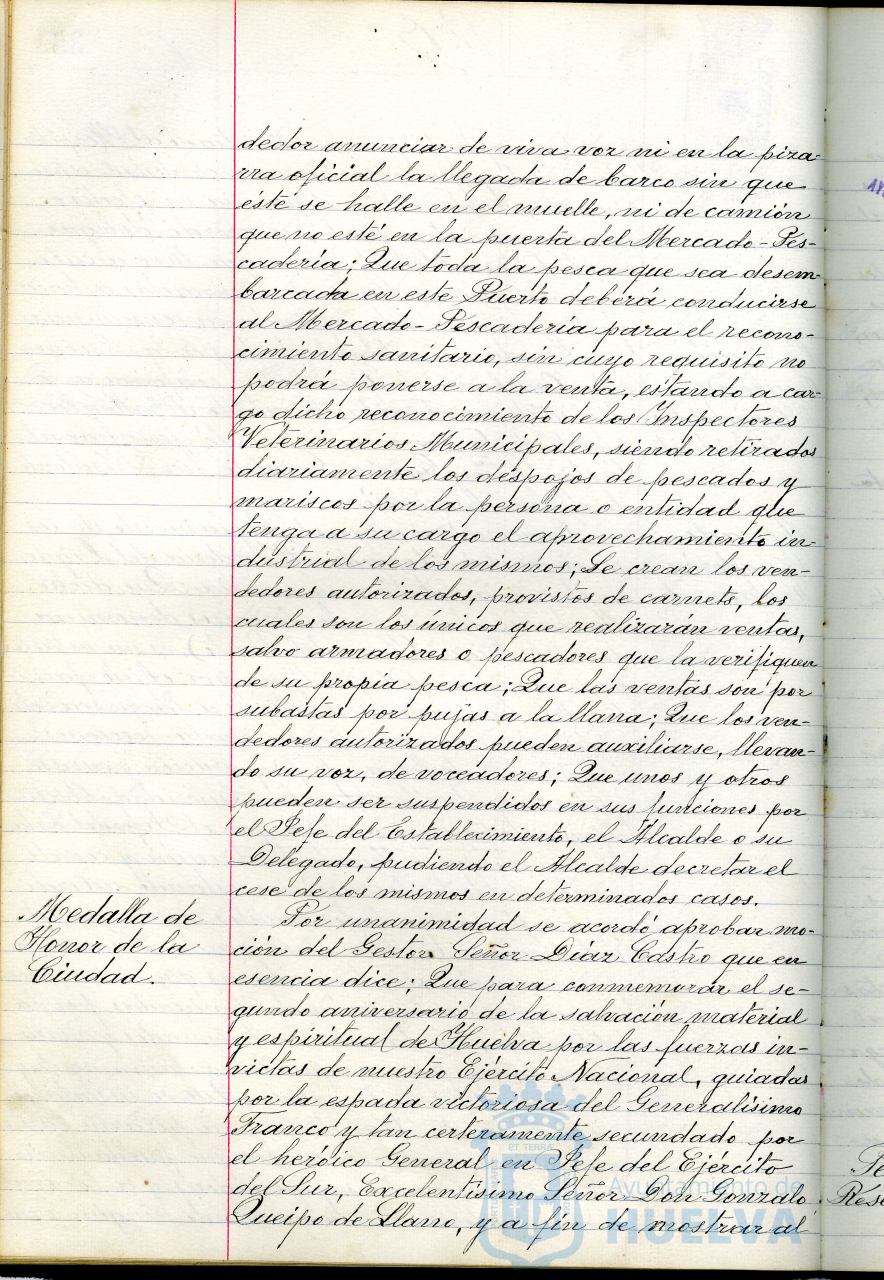 dedor anunciar de viva voz ni en la piza-
rra oficial la llegada de barco sin que
éste se halle en el muelle, ni de camión
que no esté en la puerta del Mercado-Pes-
cadería; Que toda la pesca que sea desem-
barcada en este Puerto deberá conducirse
al Mercado-Pescadería para el recono-
cimiento sanitario, sin cuyo requisito no
podrá ponerse a la venta, estando a car-
go dicho reconocimiento de los Inspectores
Veterinarios Municipales, siendo retirados
diariamente los despojos de pescados y
mariscos por la persona o entidad que
tenga a su cargo el aprovechamiento in-
dustrial de los mismos; Se crean los ven-
dedores autorizados, provistos de carnets, los
cuales son los únicos que realizarán ventas,
salvo armadores o pescadores que la verifiquen
de su propia pesca; Que las ventas son por
subastas por pujas a la llana; Que los ven-
dedores autorizados pueden auxiliarse, llevan-
do su voz, de voceadores; Que unos y otros
pueden ser suspendidos en sus funciones por
el Jefe del Establecimiento, el Alcalde o su
Delegado, pudiendo el Alcalde decretar el
cese de los mismos en determinados casos.
Medalla de
Honor de la
Ciudad.
Por unanimidad se acordó aprobar mo-
ción del Gestor Señor Díaz Castro que en
esencia dice: Que para conmemorar el se-
gundo aniversario de la salvación material
y espiritual de Huelva por las fuerzas in-
victas de nuestro Ejército Nacional, guiadas
por la espada victoriosa del Generalísimo
Franco y tan certeramente secundado por
el heroico General en Jefe del Ejército
del Sur, Excelentísimo Señor Don Gonzalo
Queipo de Llano, y a fin de mostrar al
Ayuntamiento de
HUELVA